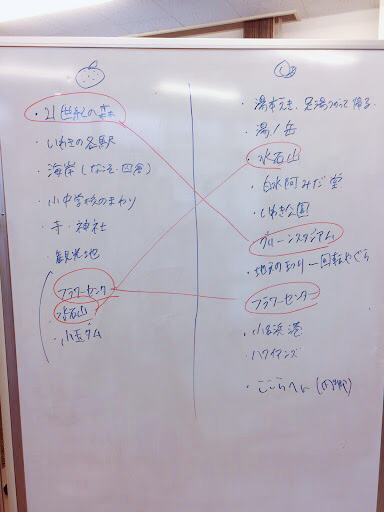 ・21世紀の森
・いわきの各駅
・海岸(しなそ・四倉)
・小中学校のまわり
・寺・神社
・観光地
フラワーセンター
・水石山
・小玉ダム
・湯本えき、足湯つかって帰る
・湯ノ岳
・水石山
・白水阿みだ堂
・いわき公園
グリーンスタジアム
・地元のまつり
フラワーセンター
・小名浜港
・ハワイアンズ
・ここらへん(内郷)